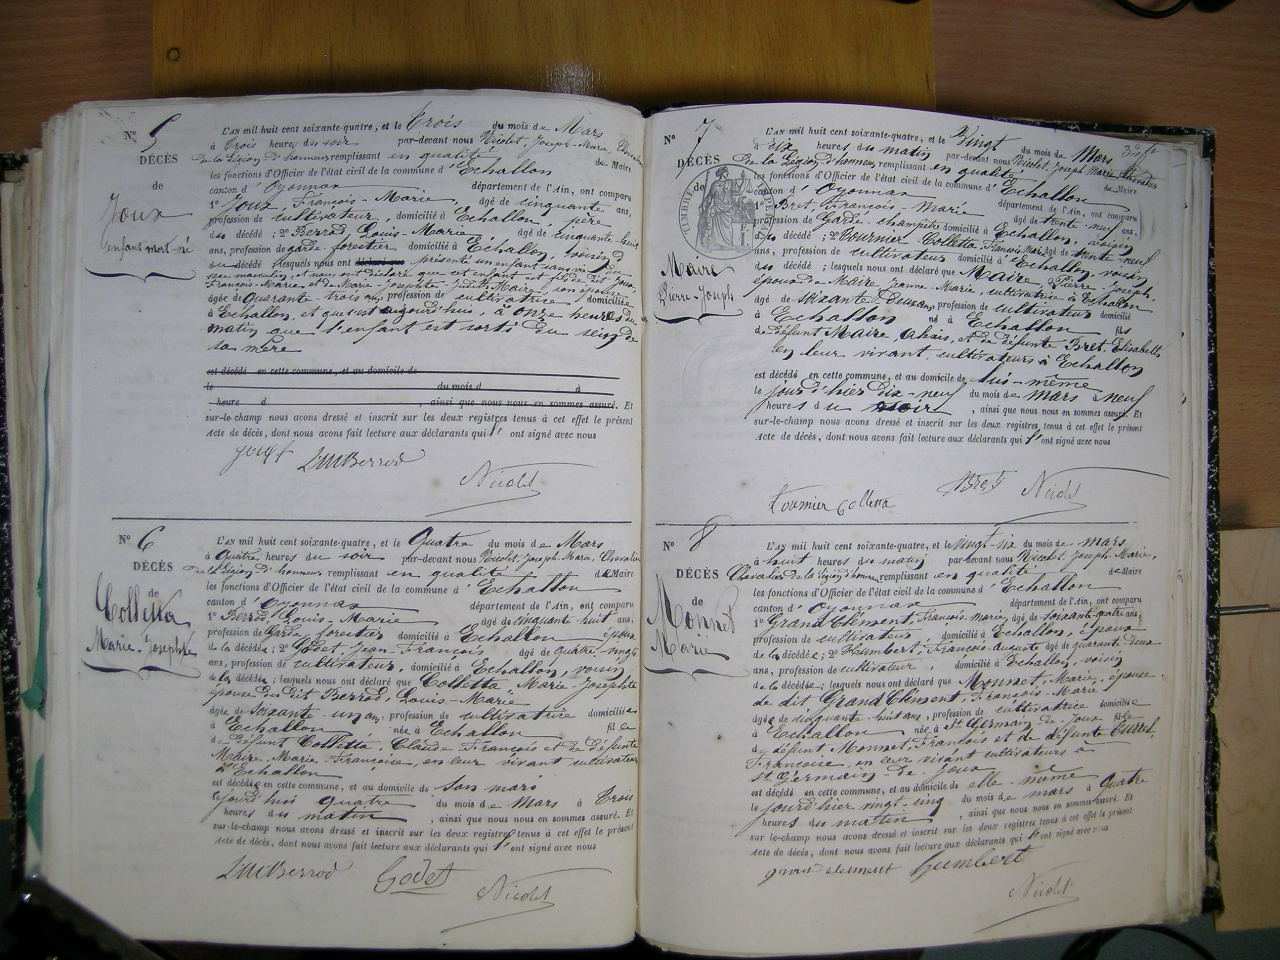 N° 5
DÉCÈS
de
Joux
enfant mort-né
L'AN mil huit cent soixante-quatre, et le Trois du mois de Mars
à Trois heures du soir par-devant nous Nicolet, Joseph-Marie, Chevalier
de la Légion d'honneur remplissant en qualité de Maire
les fonctions d'Officier de l'état civil de la commune d'Echallon
canton d'Oyonnax département de l'Ain, ont comparu
1° Joux, François-Marie, âgé de cinquante ans,
profession de cultivateur, domicilié à Echallon, père
du décédé ; 2° Berrod, Louis-Marie âgé de cinquante huit
ans, profession de garde forestier domicilié à Echallon, voisin
du décédé lesquels nous ont présenté un enfant sans vie du
sexe masculin, et nous ont déclaré que cet enfant est fils de dit Joux,
François-Marie et de Marie-Josephte-Judith Maire, son épouse
âgée de quarante-trois ans, profession de cultivatrice domiciliée
à Echallon, et que c'est aujourd'hui, à onze heures du
matin que l'enfant est sorti du sein de
sa mère
est décédé en cette commune, et au domicile de
le du mois d à
heure d , ainsi que nous nous en sommes assuré. Et
sur-le-champ nous avons dressé et inscrit sur les deux registres tenus à cet effet le présent
acte de décès, dont nous avons fait lecture aux déclarants qui l'ont signé avec nous
Joux LM Berrod Nicolet
N° 6
DÉCÈS
de
Colletta
Marie-Josephte
L'AN mil huit cent soixante-quatre, et le Quatre du mois de Mars
à quatre heures du soir par-devant nous Nicolet, Joseph-Marie, Chevalier
de la Légion d'honneur remplissant en qualité de Maire
les fonctions d'Officier de l'état civil de la commune d'Echallon
canton d'Oyonnax département de l'Ain, ont comparu
1° Berrod, Louis-Marie âgé de cinquante huit ans,
profession de Garde forestier domicilié à Echallon, époux
de la décédée ; 2° Godet, Jean-François âgé de quatre-vingts
ans, profession de cultivateur, domicilié à Echallon, voisin
de la décédée ; lesquels nous ont déclaré que Colletta Marie-Josephte
épouse du dit Berrod, Louis-Marie
âgée de soixante-un ans, profession de cultivatrice domiciliée
à Echallon née à Echallon fille
de défunt Colletta, Claude François et de défunte
Maire, Marie Françoise, en leur vivant cultivateurs
à Echallon
est décédée en cette commune, et au domicile de son mari
le jourd'hui quatre du mois de Mars à Trois
heures du matin , ainsi que nous nous en sommes assuré. Et
sur-le-champ nous avons dressé et inscrit sur les deux registres tenus à cet effet le présent
acte de décès, dont nous avons fait lecture aux déclarants qui l'ont signé avec nous
LM Berrod Godet Nicolet
N° 7
DÉCÈS
de
Maire
Pierre-Joseph
L'AN mil huit cent soixante-quatre, et le Vingt du mois de Mars
à dix heures du matin par-devant nous Nicolet, Joseph Marie Chevalier
de la Légion d'honneur remplissant en qualité de Maire
les fonctions d'Officier de l'état civil de la commune d'Echallon
canton d'Oyonnax département de l'Ain, ont comparu
1° Bret François-Marie âgé de trente-neuf ans,
profession de Garde champêtre domicilié à Echallon, voisin
du décédé ; 2° Tournier Colletta, François-Marie, âgé de trente neuf
ans, profession de cultivateur domicilié à Echallon, voisin
du décédé ; lesquels nous ont déclaré que Maire, Pierre-Joseph,
époux de Maire Jeanne Marie, cultivatrice à Echallon
âgé de soixante deux ans, profession de cultivateur domicilié
à Echallon né à Echallon fils
de défunt Maire, Alexis, et de défunte Bret, Elisabeth
en leur vivant, cultivateurs à Echallon
est décédé en cette commune, et au domicile de lui-même
le jour d'hier dix-neuf du mois de mars à neuf
heures du soir , ainsi que nous nous en sommes assuré. Et
sur-le-champ nous avons dressé et inscrit sur les deux registres tenus à cet effet le présent
acte de décès, dont nous avons fait lecture aux déclarants qui l'ont signé avec nous
Tournier Colletta Bret Nicolet
N° 8
DÉCÈS
de
Monnet
Marie
L'AN mil huit cent soixante-quatre, et le vingt-six du mois de mars
à huit heures du matin par-devant nous Nicolet, Joseph Marie,
Chevalier de la Légion d'honneur remplissant en qualité de Maire
les fonctions d'Officier de l'état civil de la commune d'Echallon
canton d'Oyonnax département de l'Ain, ont comparu
1° Grand Clément, François-Marie, âgé de soixante quatre ans,
profession de cultivateur, domicilié à Echallon, époux
de la décédée ; 2° Humbert, François Auguste âgé de quarante-deux
ans, profession de cultivateur, domicilié à Echallon, voisin
de la décédée ; lesquels nous ont déclaré que Monnet, Marie, épouse
de dit, Grand Clément, François-Marie
âgée de cinquante huit ans, profession de cultivatrice domiciliée
à Echallon née à St Germain de Joux fille
de défunt Monnet, François et de défunte
Françoise, en leur vivant cultivateurs à
St Germain-de-Joux
est décédée en cette commune, et au domicile de elle-même
le jourd'hier vingt-cinq du mois de mars à quatre
heures du matin , ainsi que nous nous en sommes assuré. Et
sur-le-champ nous avons dressé et inscrit sur les deux registres tenus à cet effet le présent
acte de décès, dont nous avons fait lecture aux déclarants qui l'ont signé avec nous
grand clement Humbert
Nicolet